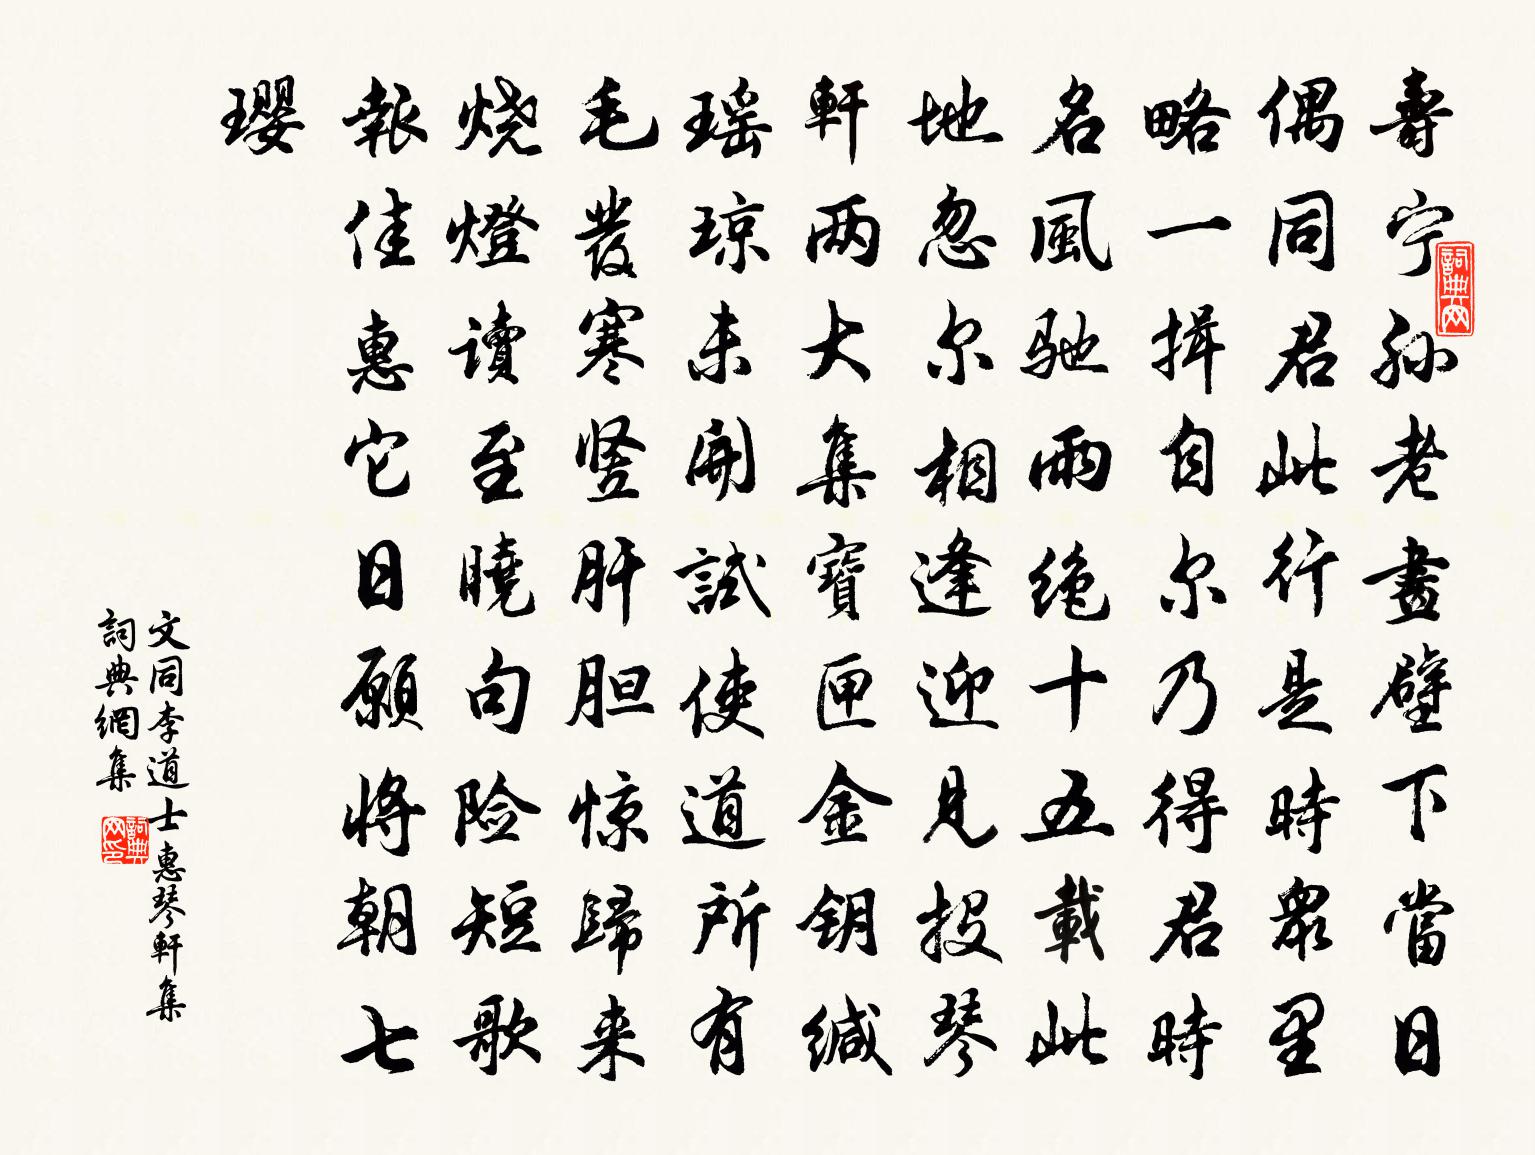 壽宁孙老畫壁下當日
偶同君此行是時眾里
略一揖自尔乃得君時
名風馳雨绝十五載此
地忽尔相逢迎見投琴
軒两大集寶匣金钥缄
瑶琼未開試使道所有
毛发寒竖肝胆惊歸来
烧燈讀至曉句险短歌
報佳惠它日願将朝七
璎
文同李道士惠琴軒集
詞典網集
詞典网
詞典网印